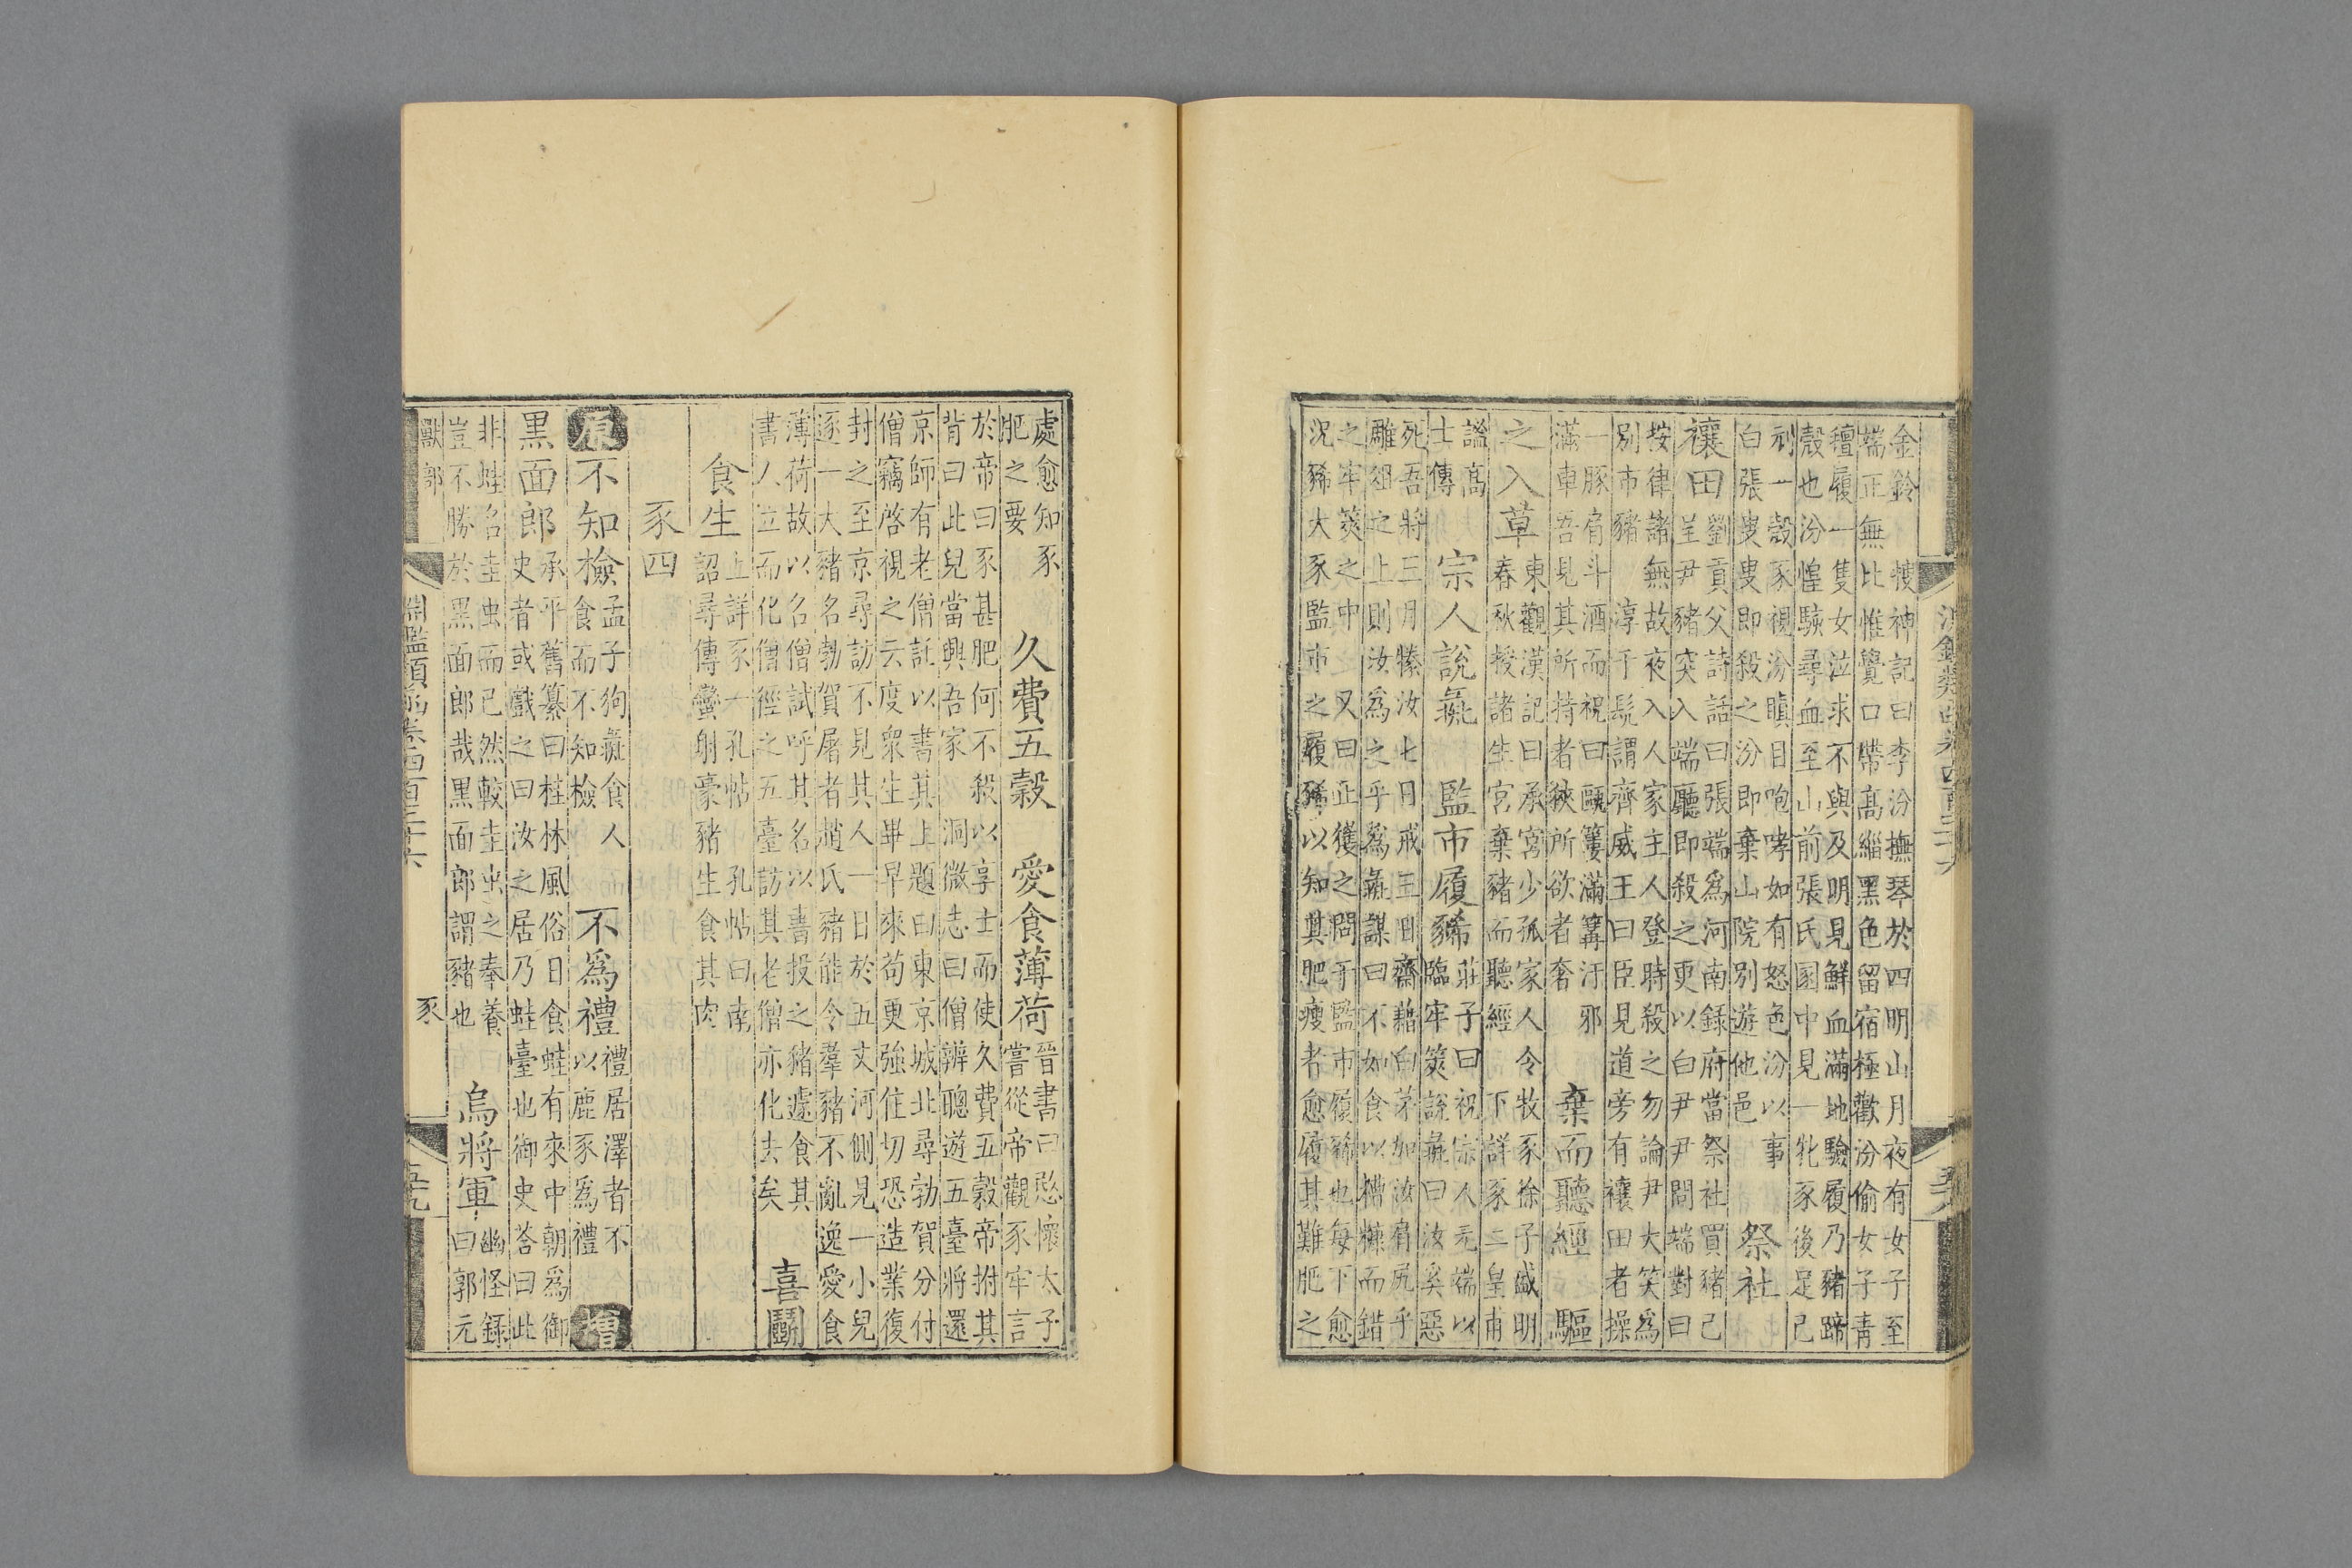 金鈴　搜神記曰李汾撫琴於四明山月夜有女子至
端正無比惟覺口帶髙緇黑色留宿極歡汾偷女子青
氊履一隻女泣求不與及明見鮮血滿地驗履乃豬蹄
殼也汾惶駭尋血至山前張氏圂中見一牝豕後足已
刓一殼豕視汾瞋目咆哮如有怒色汾以事
白張叟叟即殺之汾即棄山院別遊他邑
祭社
禳田
劉貢父詩話曰張端為河南錄府當祭社買豬已
呈尹豬突入端廳即殺之吏以白尹尹問端對曰
按律諸無故夜入人家主人登時殺之勿論尹大笑為
別市豬　淳于髠謂齊威王曰臣見道旁有禳田者操
一豚肩斗酒而祝曰甌簍滿篝汙邪
滿車吾見其所持者狹所欲者奢
棄而聽經　驅
之入草
東觀漢記曰承宮少孤家人令牧豕徐子盛明
春秋授諸生宮棄豬而聽經　下詳豕二皇甫
謐髙
士傳
宗人說彘　監市履豨
莊子曰祝宗人元端以
臨牢筴說彘曰汝奚惡
死吾將三月㹖汝七日戒三日齋藉白茅加汝肩尻乎
雕俎之上則汝為之乎為彘謀曰不如食以糟糠而錯
之牢筴之中　又曰正獲之問于監市履豨也每下愈
況豨大豕監市之履豨以知其肥瘦者愈履其難肥之
處愈知豕
肥之要
久費五穀　愛食薄荷
晉書曰愍懷太子
嘗從帝觀豕牢言
於帝曰豕甚肥何不殺以享士而使久費五穀帝拊其
背曰此兒當興吾家　洞微志曰僧辨聰遊五臺將還
京師有老僧託以書其上題曰東京城北尋勃賀分付
僧竊啓視之云度衆生畢早來苟更強住切恐造業復
封之至京尋訪不見其人一日於五丈河側見一小兒
逐一大豬名勃賀屠者趙氏豬能令羣豬不亂逸愛食
薄荷故以名僧試呼其名以書投之豬遽食其
書人立而化僧徑之五臺訪其老僧亦化去矣
喜鬭
食生
上詳豕一孔帖　孔帖曰南
詔尋傳蠻射豪豬生食其肉
豕四
原　不知檢
孟子狗彘食人
食而不知檢
不為禮
禮居澤者不
以鹿豕為禮
增
黑面郎
承平舊纂曰桂林風俗日食蛙有來中朝為御
史者或戲之曰汝之居乃蛙臺也御史荅曰此
非蛙名圭虫而已然較圭虫之奉養
豈不勝於黑面郎哉黑面郎謂豬也
烏將軍
幽怪錄
曰郭元
淵鑑類函卷四百三十六
豕